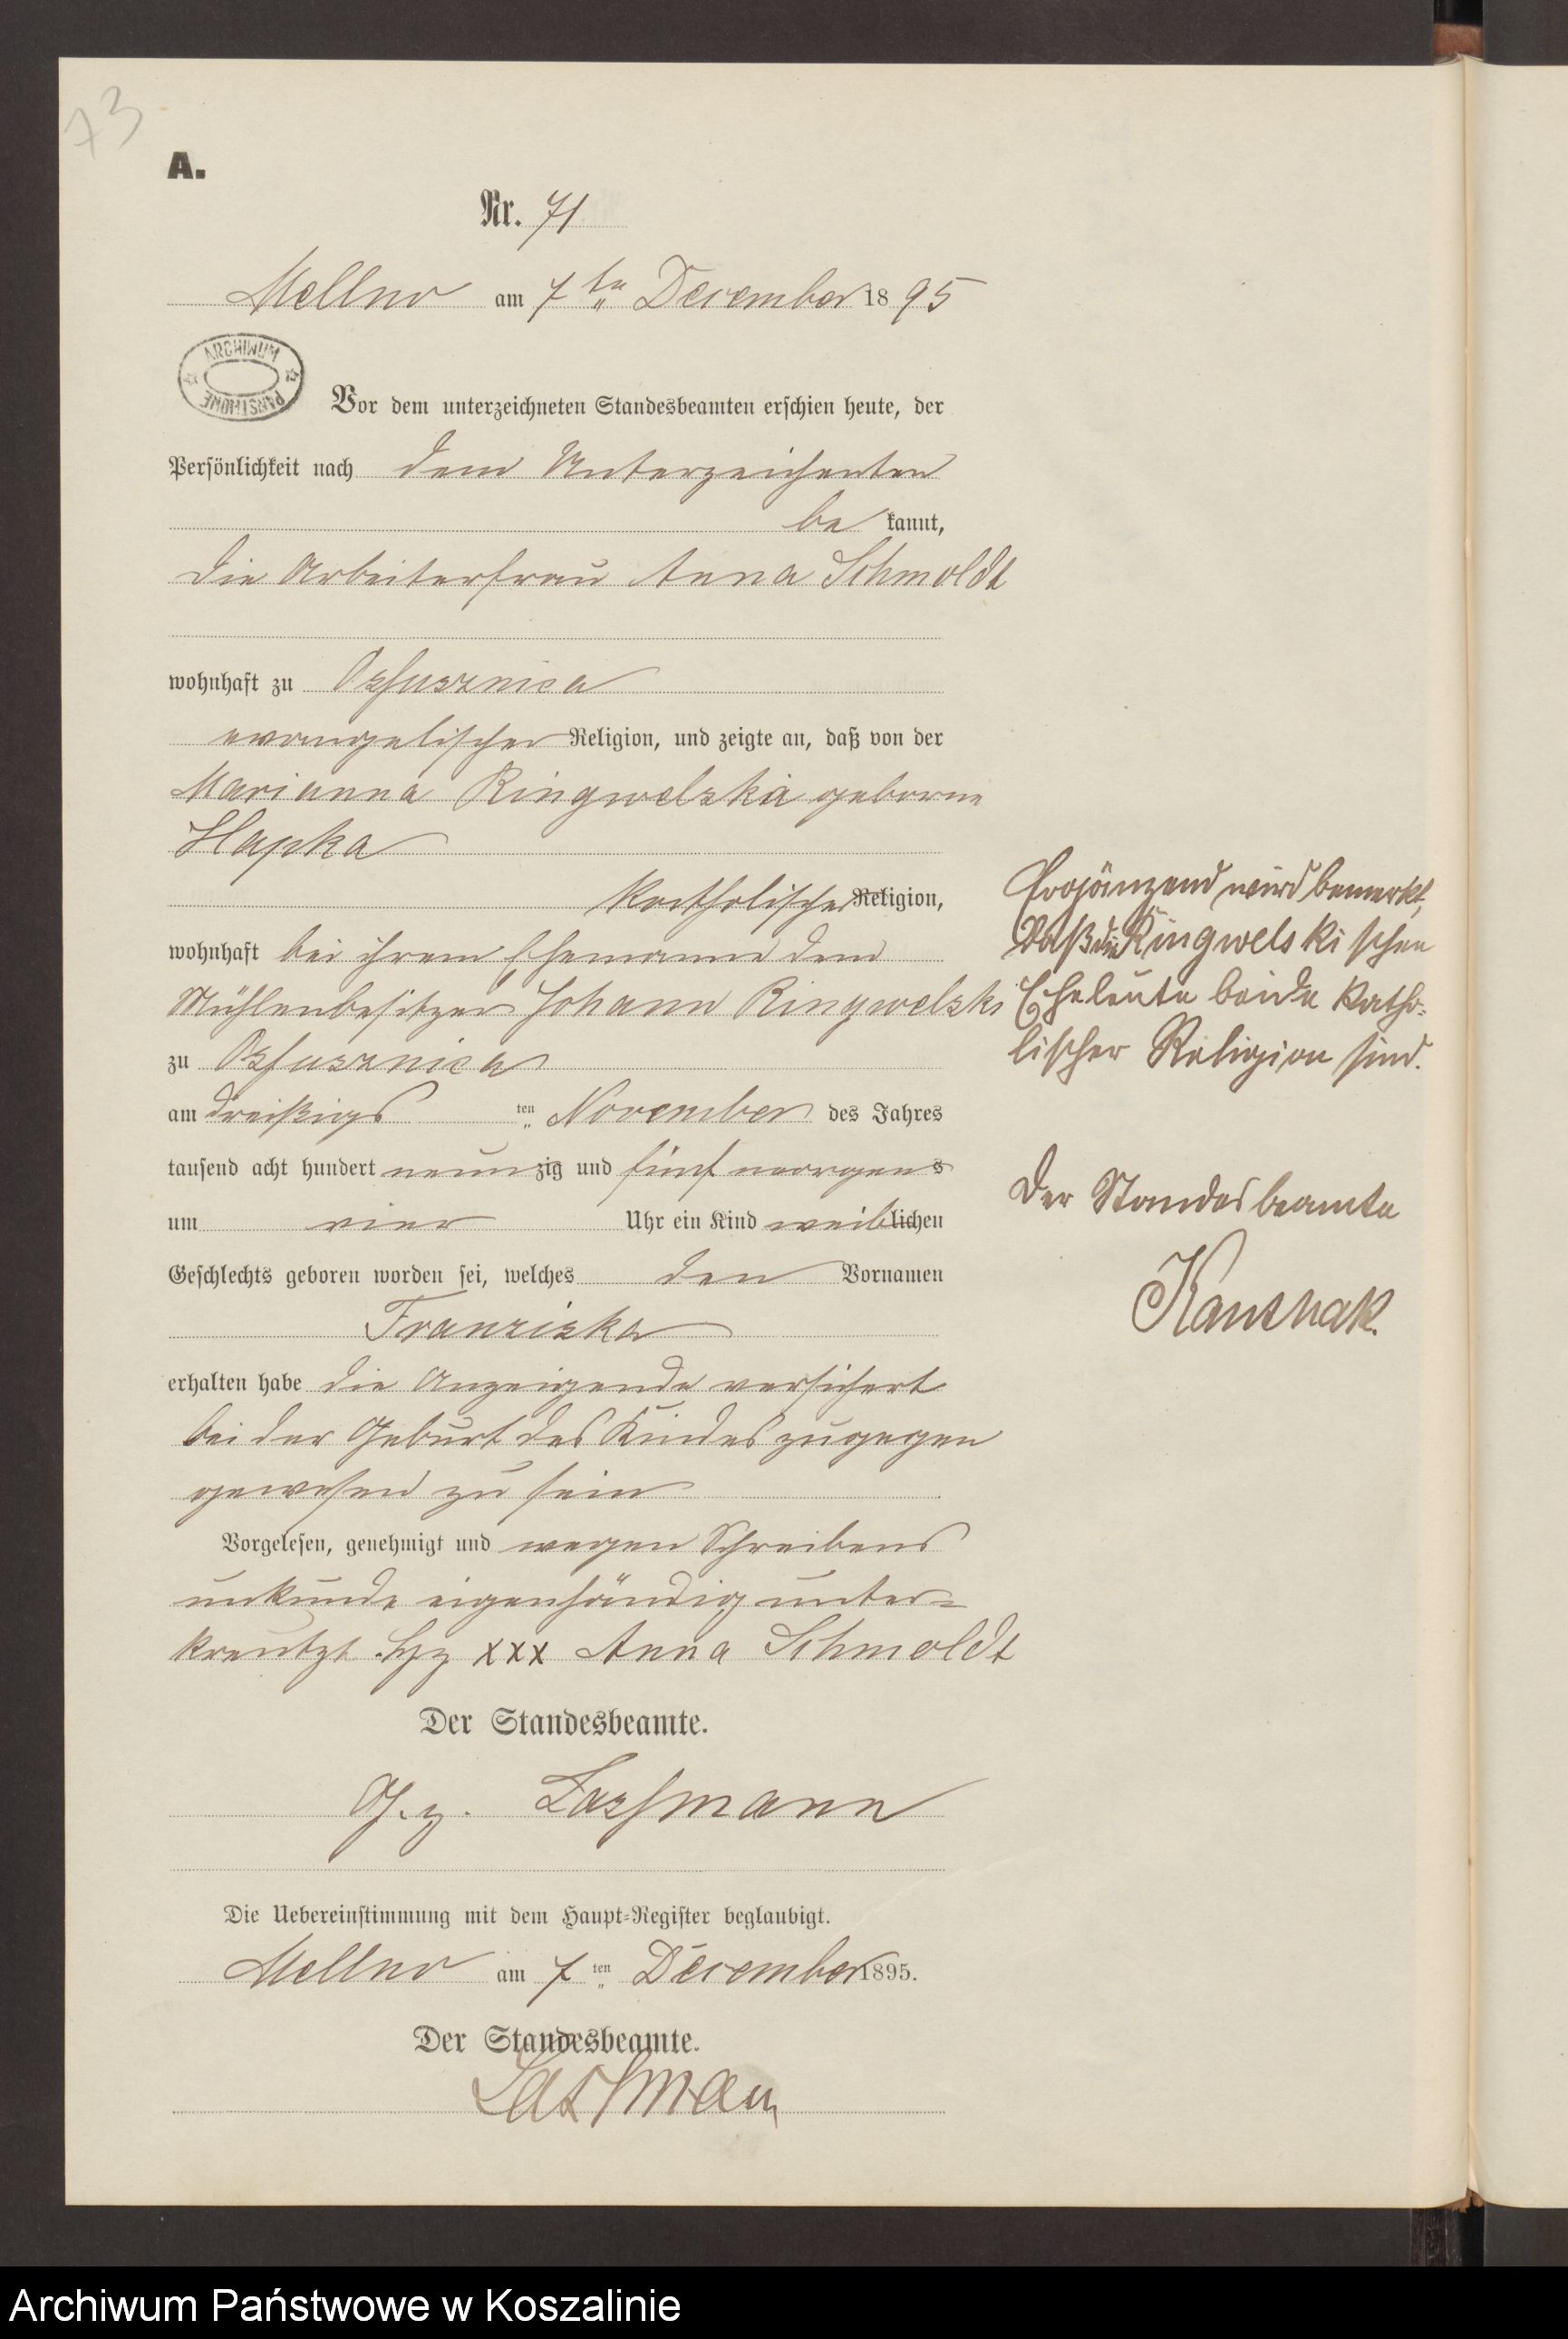 73
A.
Nr. 71
Mellno am 7ten December 1895
ARCHIWUM PAŃSTWOWE
Vor dem unterzeichneten Standesbeamten erschien heute, der
Persönlichkeit nach dem Unterzeichenten
be kannt,
die Arbeiterfrau Anna Schmoldt
wohnhaft zu Ossusznica
evangelischer Religion, und zeigte an, daß von der
Marianna Ringwelska geborne
Hapka
katholischer Religion,
wohnhaft bei ihrem Ehemanne dem
Mühlenbesitzer Johann Ringwelski
zu Ossusznica
am dreißigs ten November des Jahres
tausend acht hundert neunzig und fünf morgens
um vier Uhr ein Kind weiblichen
Geschlechts geboren worden sei, welches den Vornamen
Franziska
erhalten habe die Anzeigende versichert
bei der Geburt des Kindes zugegen
gewesen zu sein
Vorgelesen, genehmigt und wegen Schreibens
unkunde eigenhändig unter=
kreutzt xxx Anna Schmoldt
Der Standesbeamte.
G.z. Lassmann
Die Uebereinstimmung mit dem Haupt=Register beglaubigt.
Mellno am 7 ten December 1895.
Der Standesbeamte.
Lassmann
Ergänzend wird bemerkt,
daß die Ringwelskischen
Eheleute beide katho=
lischer Religion sind.
Der Standesbeamte
Archiwum Państwowe w Koszalinie